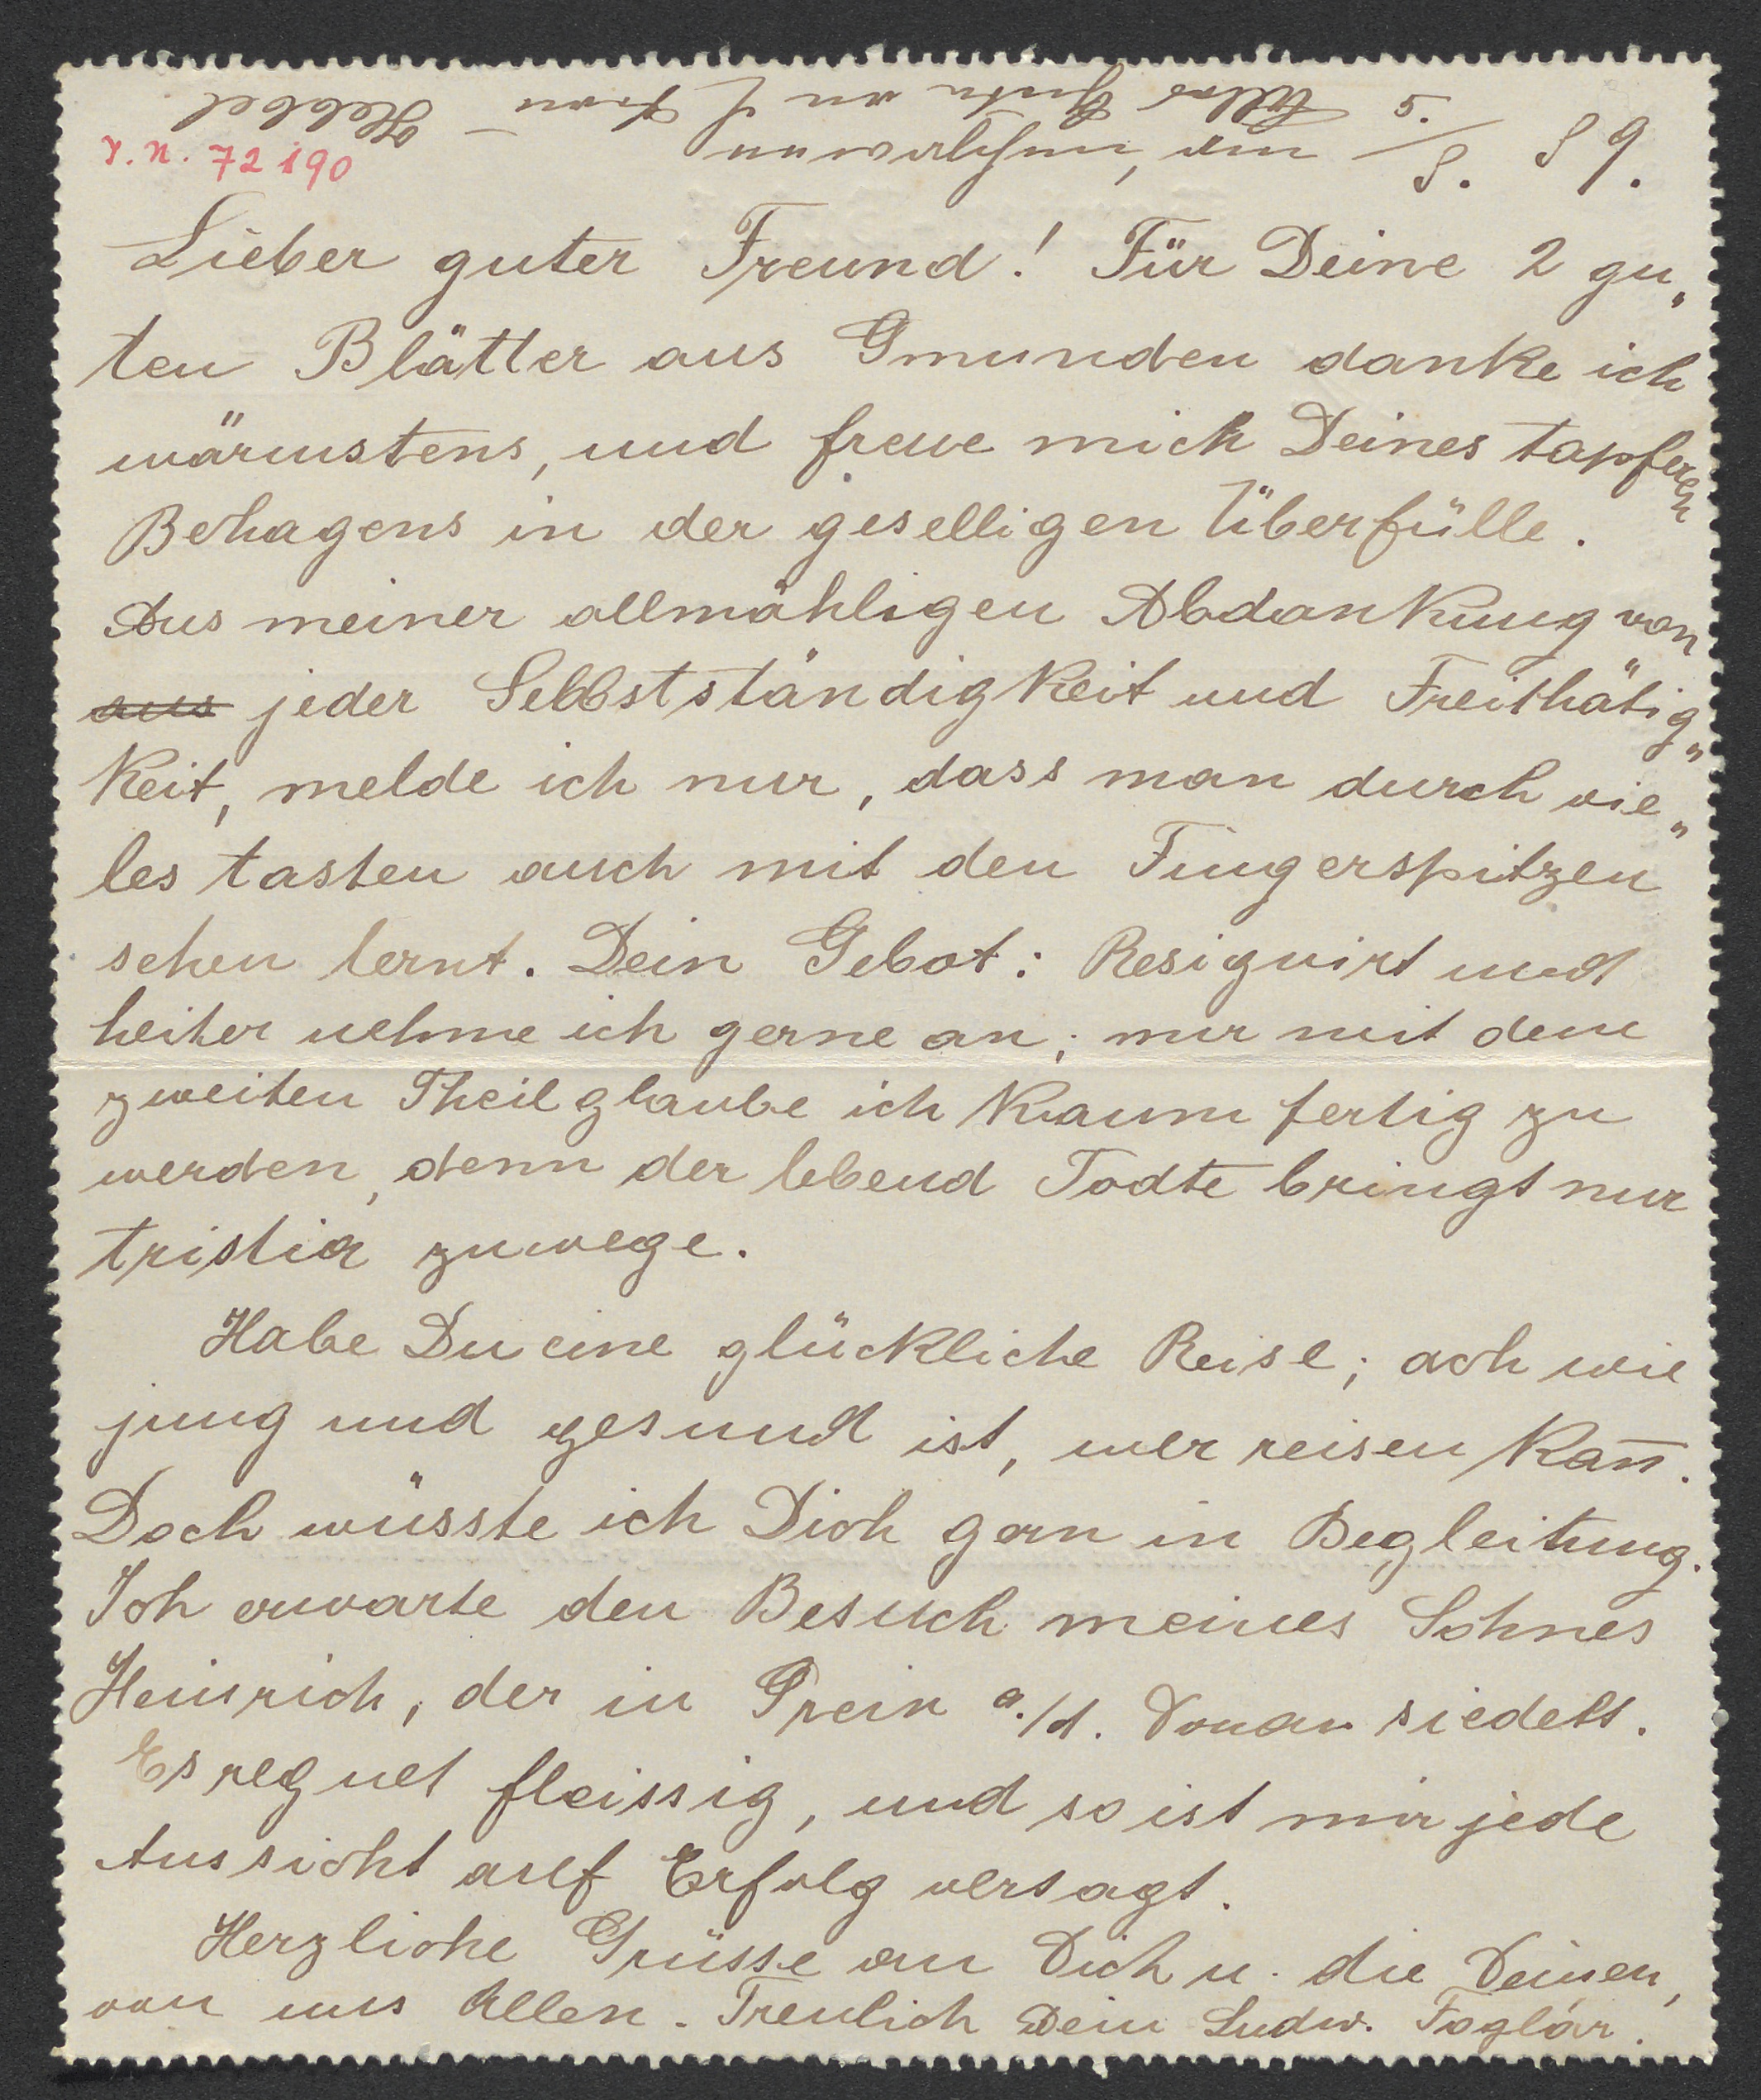 Alles Gute an d. Frau – Hebbel
I. N. 72190
5./8. 89.
Lieber guter Freund! Für Deine 2 gu„
ten Blätter aus Gmunden danke ich
wärmstens, und freue mich Deines tapferen
Behagens in der geselligen Überfülle.
Aus meiner allmähligen Abdankung von
aus jeder Selbstständigkeit und Freithätig„
keit, melde ich nur, dass man durch vie„
les tasten auch mit den Fingerspitzen
sehen lernt. Dein Gebot: Resignirt und
heiter nehme ich gerne an; nur mit dem
zweiten Theil glaube ich kaum fertig zu
werden, denn der lebend Todte bringt nur
tristia zuwege.
Habe Du eine glückliche Reise; ach wie
jung und gesund ist, wer reisen kan̄.
Doch wüsste ich Dich gern in Begleitung.
Ich erwarte den Besuch meines Sohnes
Heinrich, der in Grein a./d. Donau siedelt.
Es regnet fleissig, und so ist mir jede
Aussicht auf Erfolg versagt.
Herzliche Grüsse an Dich u. die Deinen,
von uns Allen. Treulich Dein Ludw. Foglár.